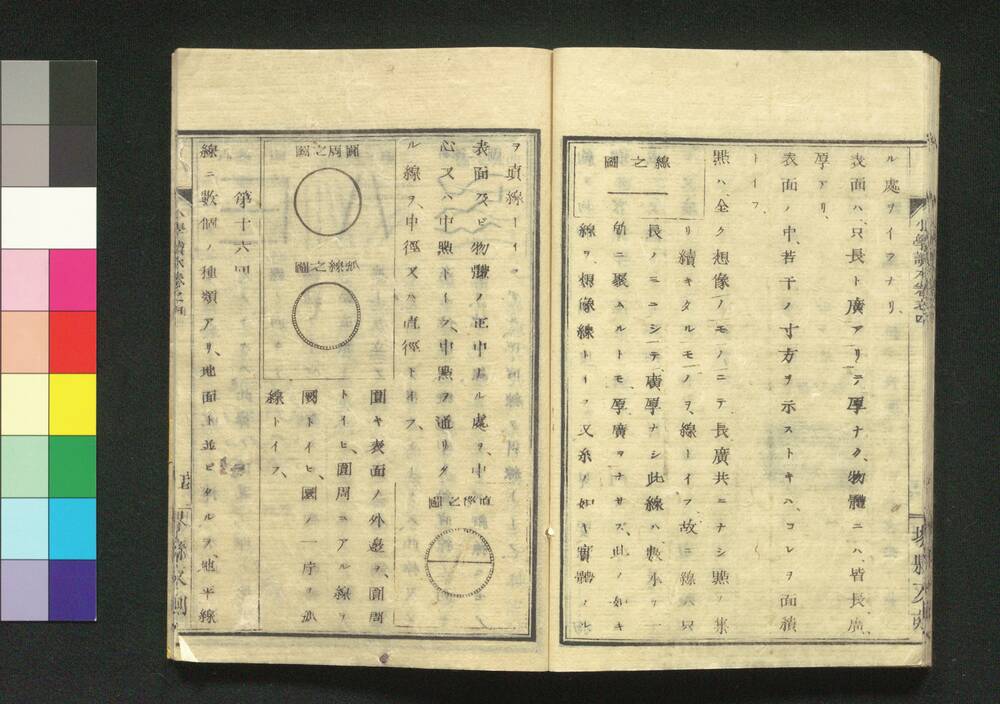 ル處ヲイフナリ、
表面ハ、只長ト廣アリテ厚ナク、物體ニハ、皆長廣
厚アリ、
表面ノ中、若干ノ寸方ヲ示ストキハ、コレヲ面積
トイフ、
點ハ、全ク想像ノモノニテ長廣共ニナシ點ノ集
リ續キタルモノヲ、線トイフ故ニ線ハ只
線之圖
長ノミニシテ、廣厚ナシ此線ハ、數本ヲ一
所ニ聚ムルトモ厚廣ヲナサズ、此ノ如キ
線ヲ、想像線トイフ、又糸ノ如キ實體ノル
小學讀本卷之四
堺縣文
ヲ眞線トイフ
表面及ビ物體ノ正中ナル處ヲ、中
心又ハ中點トイフ、中點ヲ通リタ
ル線ヲ、中徑又ハ直徑トイフ、
直徑之圖
圓周之圖
弧線之圖
圓キ表面ノ外邊ヲ、圓周
トイヒ、圓周ニアル線ヲ
圈トイヒ、圈ノ一片ヲ弧
線トイフ、
第十六回
線ニ數個ノ種類アリ、地面ト並ビタルヲ、地平線